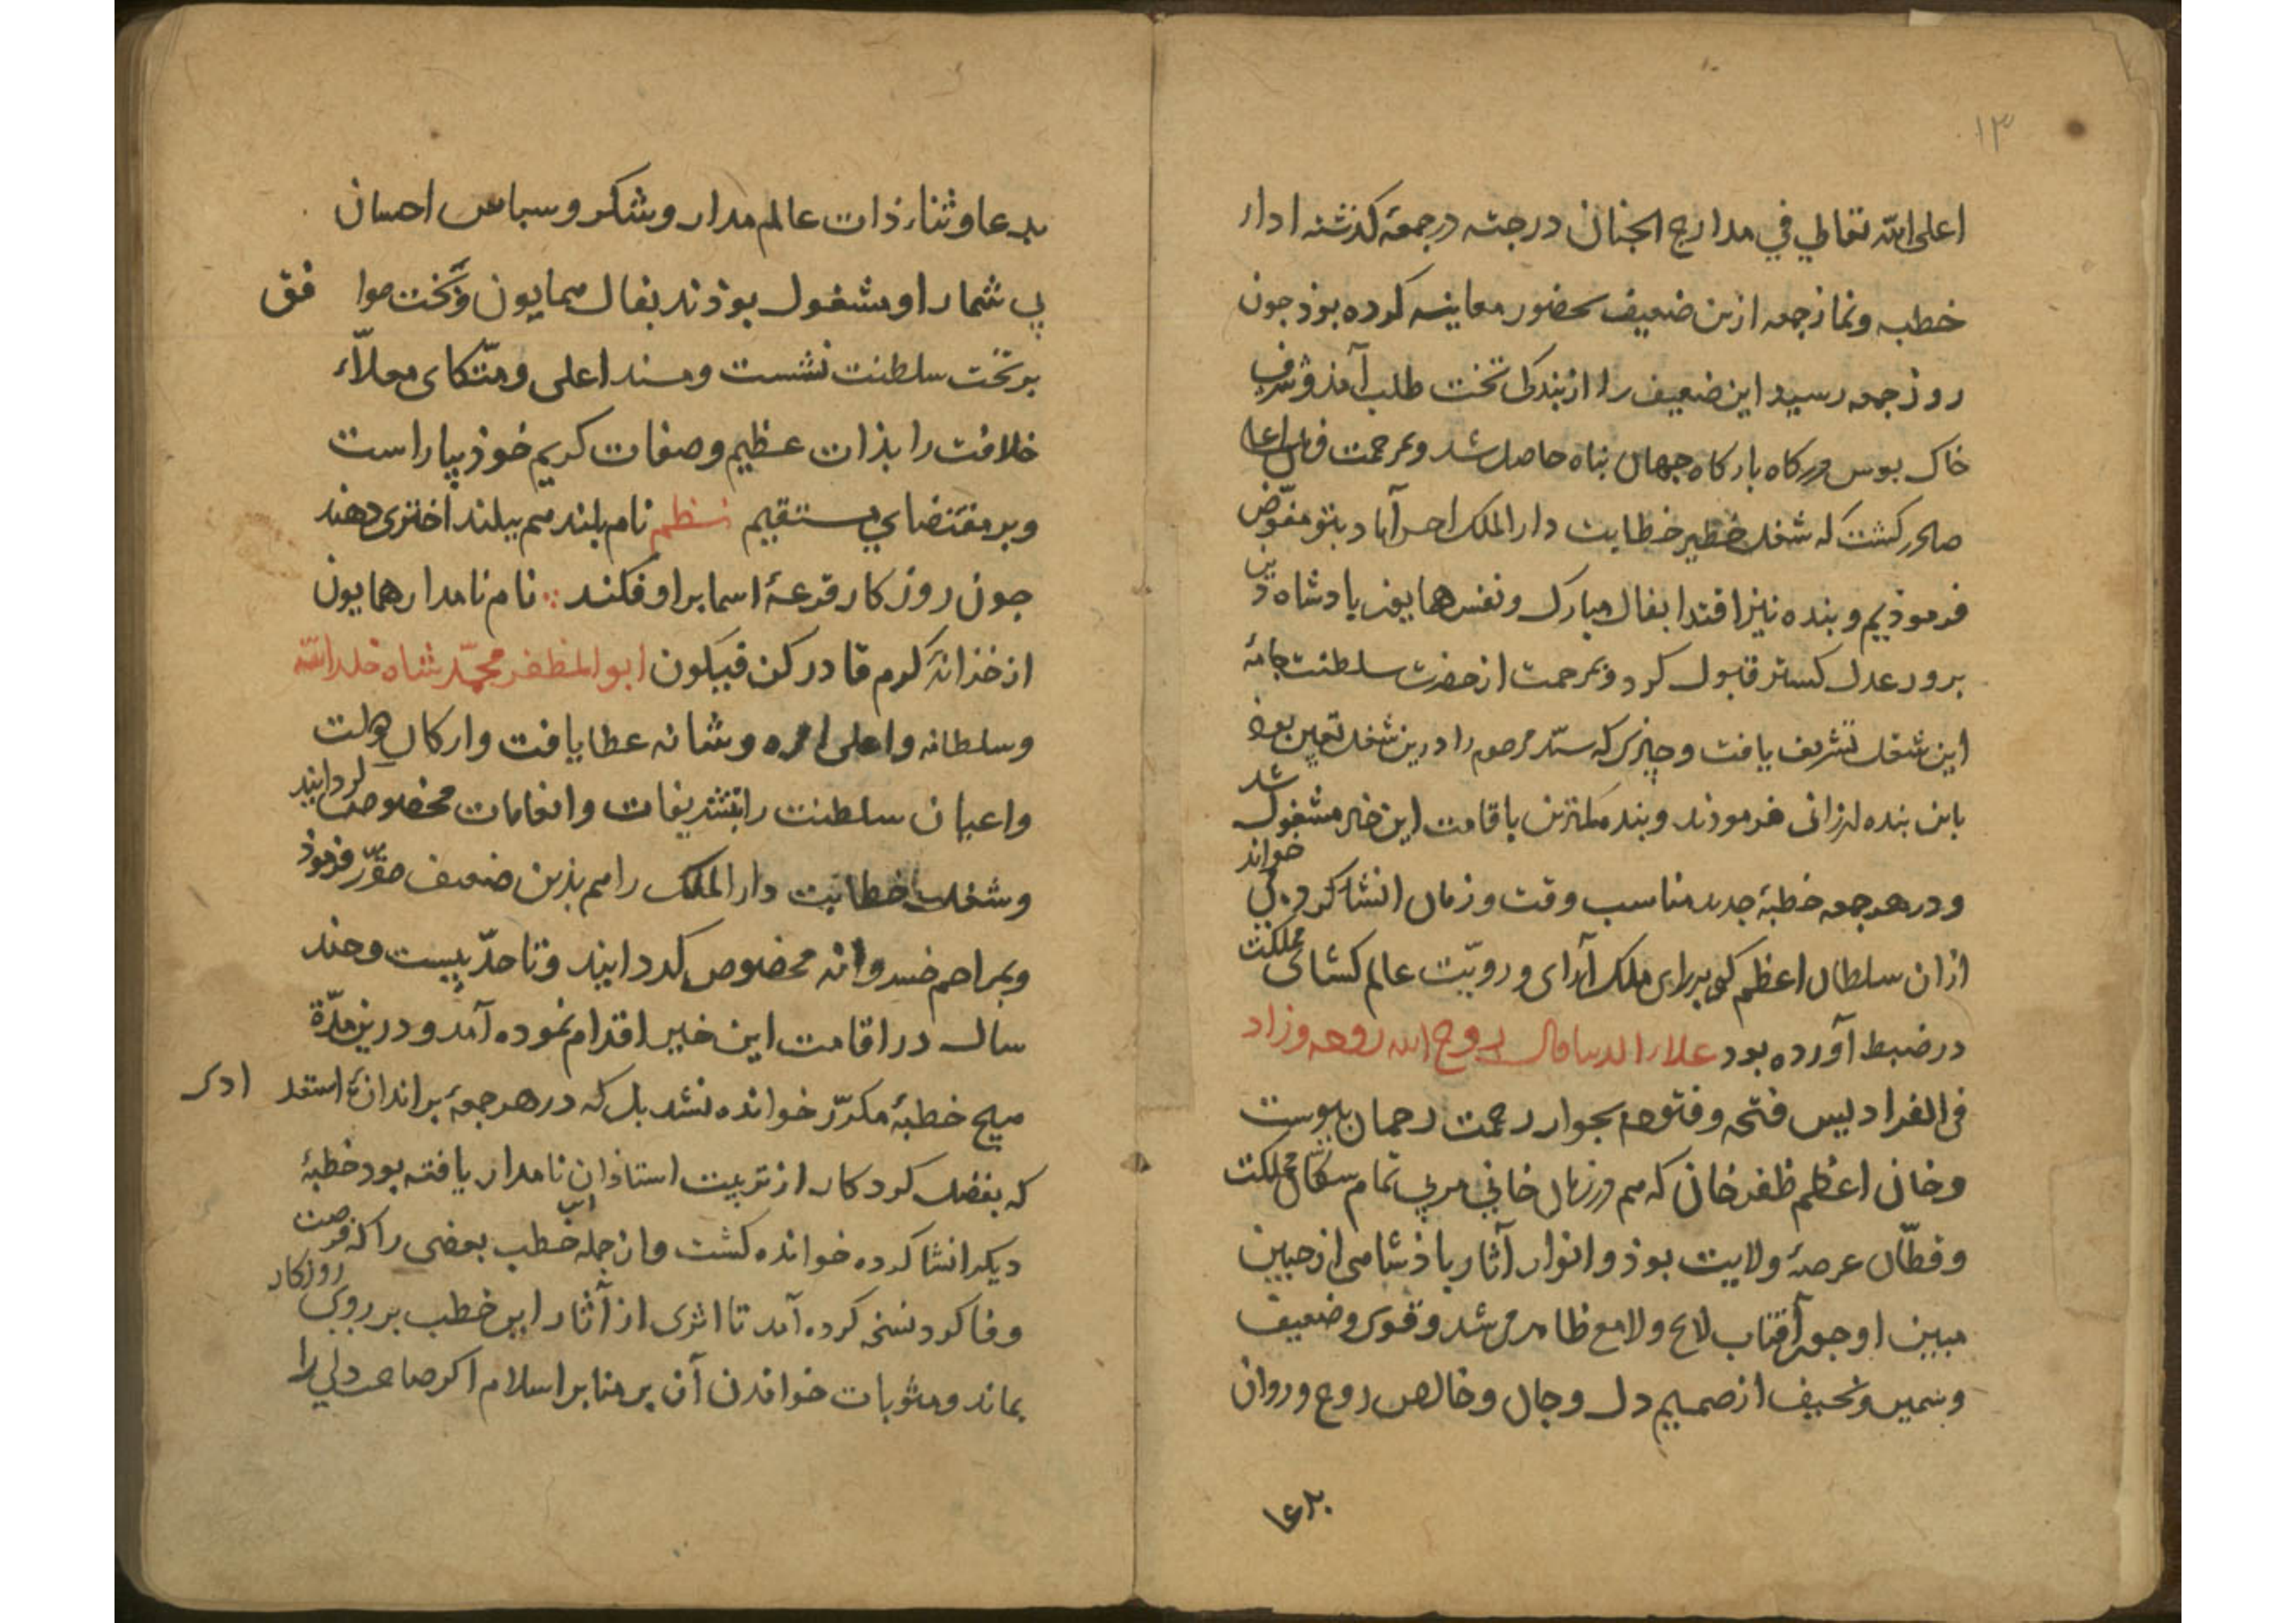 ۱۳
اعلی الله تعالی في مدارج الجنان درجته در جمعهٔ کذشته اداء
خطبه و نماز جمعه ازین ضعیف بحضور معاینه کرده بوذ جون
روز جمعه رسید این ضعیف را از بندکی تخت طلب آمذ و شرف
خاک بوس درکاه بارکاه جهان بناه حاصل شد و بمرحمت فرمان اعلی
صادر کشت که شغل خطیر خطابت دار الملک احسن آباد بتو مفوّض
فرموذیم و بنده نیز اقتدا بفال مبارک و نفس همایون باذشاه دین
برور عدل کستر قبول کرد و بمرحمت از حضرت سلطنت جامهٔ
این شغل تشریف یافت و جیزی که سیّد مرحوم را درین شغل تعیین بوذ
باین بنده ارزانی فرموذند و بنده کمترین باقامت این خیر مشغول شد
و در هر جمعه خطبهٔ جدید مناسب وقت و زمان انشا کرد می خواند
ازان سلطان اعظم که برای ملک آرای و رویّت عالم کشای مملکت
در ضبط آورده بود علاء الدنیا والدین روح الله روحه وزاد
في الفرادیس فتحه و فتوحه بجوار رحمت رحمان بیوست
و خان اعظم ظفر خان که هم در زمان خاني مربي تمام سکّان مملکت
و قطّان عرصهٔ ولایت بوذ و انوار آثار باذشاهی از جبین
مبین او جون آفتاب لایح و لامع ظاهر می شد و قوی و ضعیف
و سمین و نحیف از صمیم دل و جان و خالص روح و روان
بدعا
بدعا و ثناء ذات عالم مدار و شکر و سباس احسان
بی شمار او مشغول بوذند بفال همایون و بخت موافق
بر تخت سلطنت نشست و مسند اعلی و متّکای معلّاء
خلافت را بذات عظیم و صفات کریم خوذ بیاراست
و بر مقتضای مستقیم نظم نام بلند هم ببلند اختری دهند
جون روزکار قرعهٔ اسما بر او فکند ∴ نام نامدار همایون
از خزانهٔ کرم قادر کن فیکون ابو المظفر محمّد شاه خلد الله
و سلطانه و اعلی امره و شانه عطا یافت و ارکان دولت
و اعیان سلطنت را بتشریفات و انعامات مخصوص کردانید
و شغل خطابت دار الملک را هم بذین ضعیف مقرّر فرموذ
و بمراحم خسروانه مخصوص کردانید و تا حدّ بیست و جند
سال در اقامت این خیر اقدام نموده آمد و درین مدّة
هیج خطبهٔ مکرّر خوانده نشد بل که در هر جمعهٔ بر اندازهٔ استعداد
که بفضل کردکار از تربیت استاذان نامدار یافته بود خطبهٔ
دیکر انشا کرده خوانده کشت و از جمله این خطب بعضی را که فرصت
وفا کرد نسخه کرده آمد تا اثری از آثار این خطب بر روی روزکار
بماند و مثوبات خواندن آن بر منابر اسلام اکر صاحب دلي را